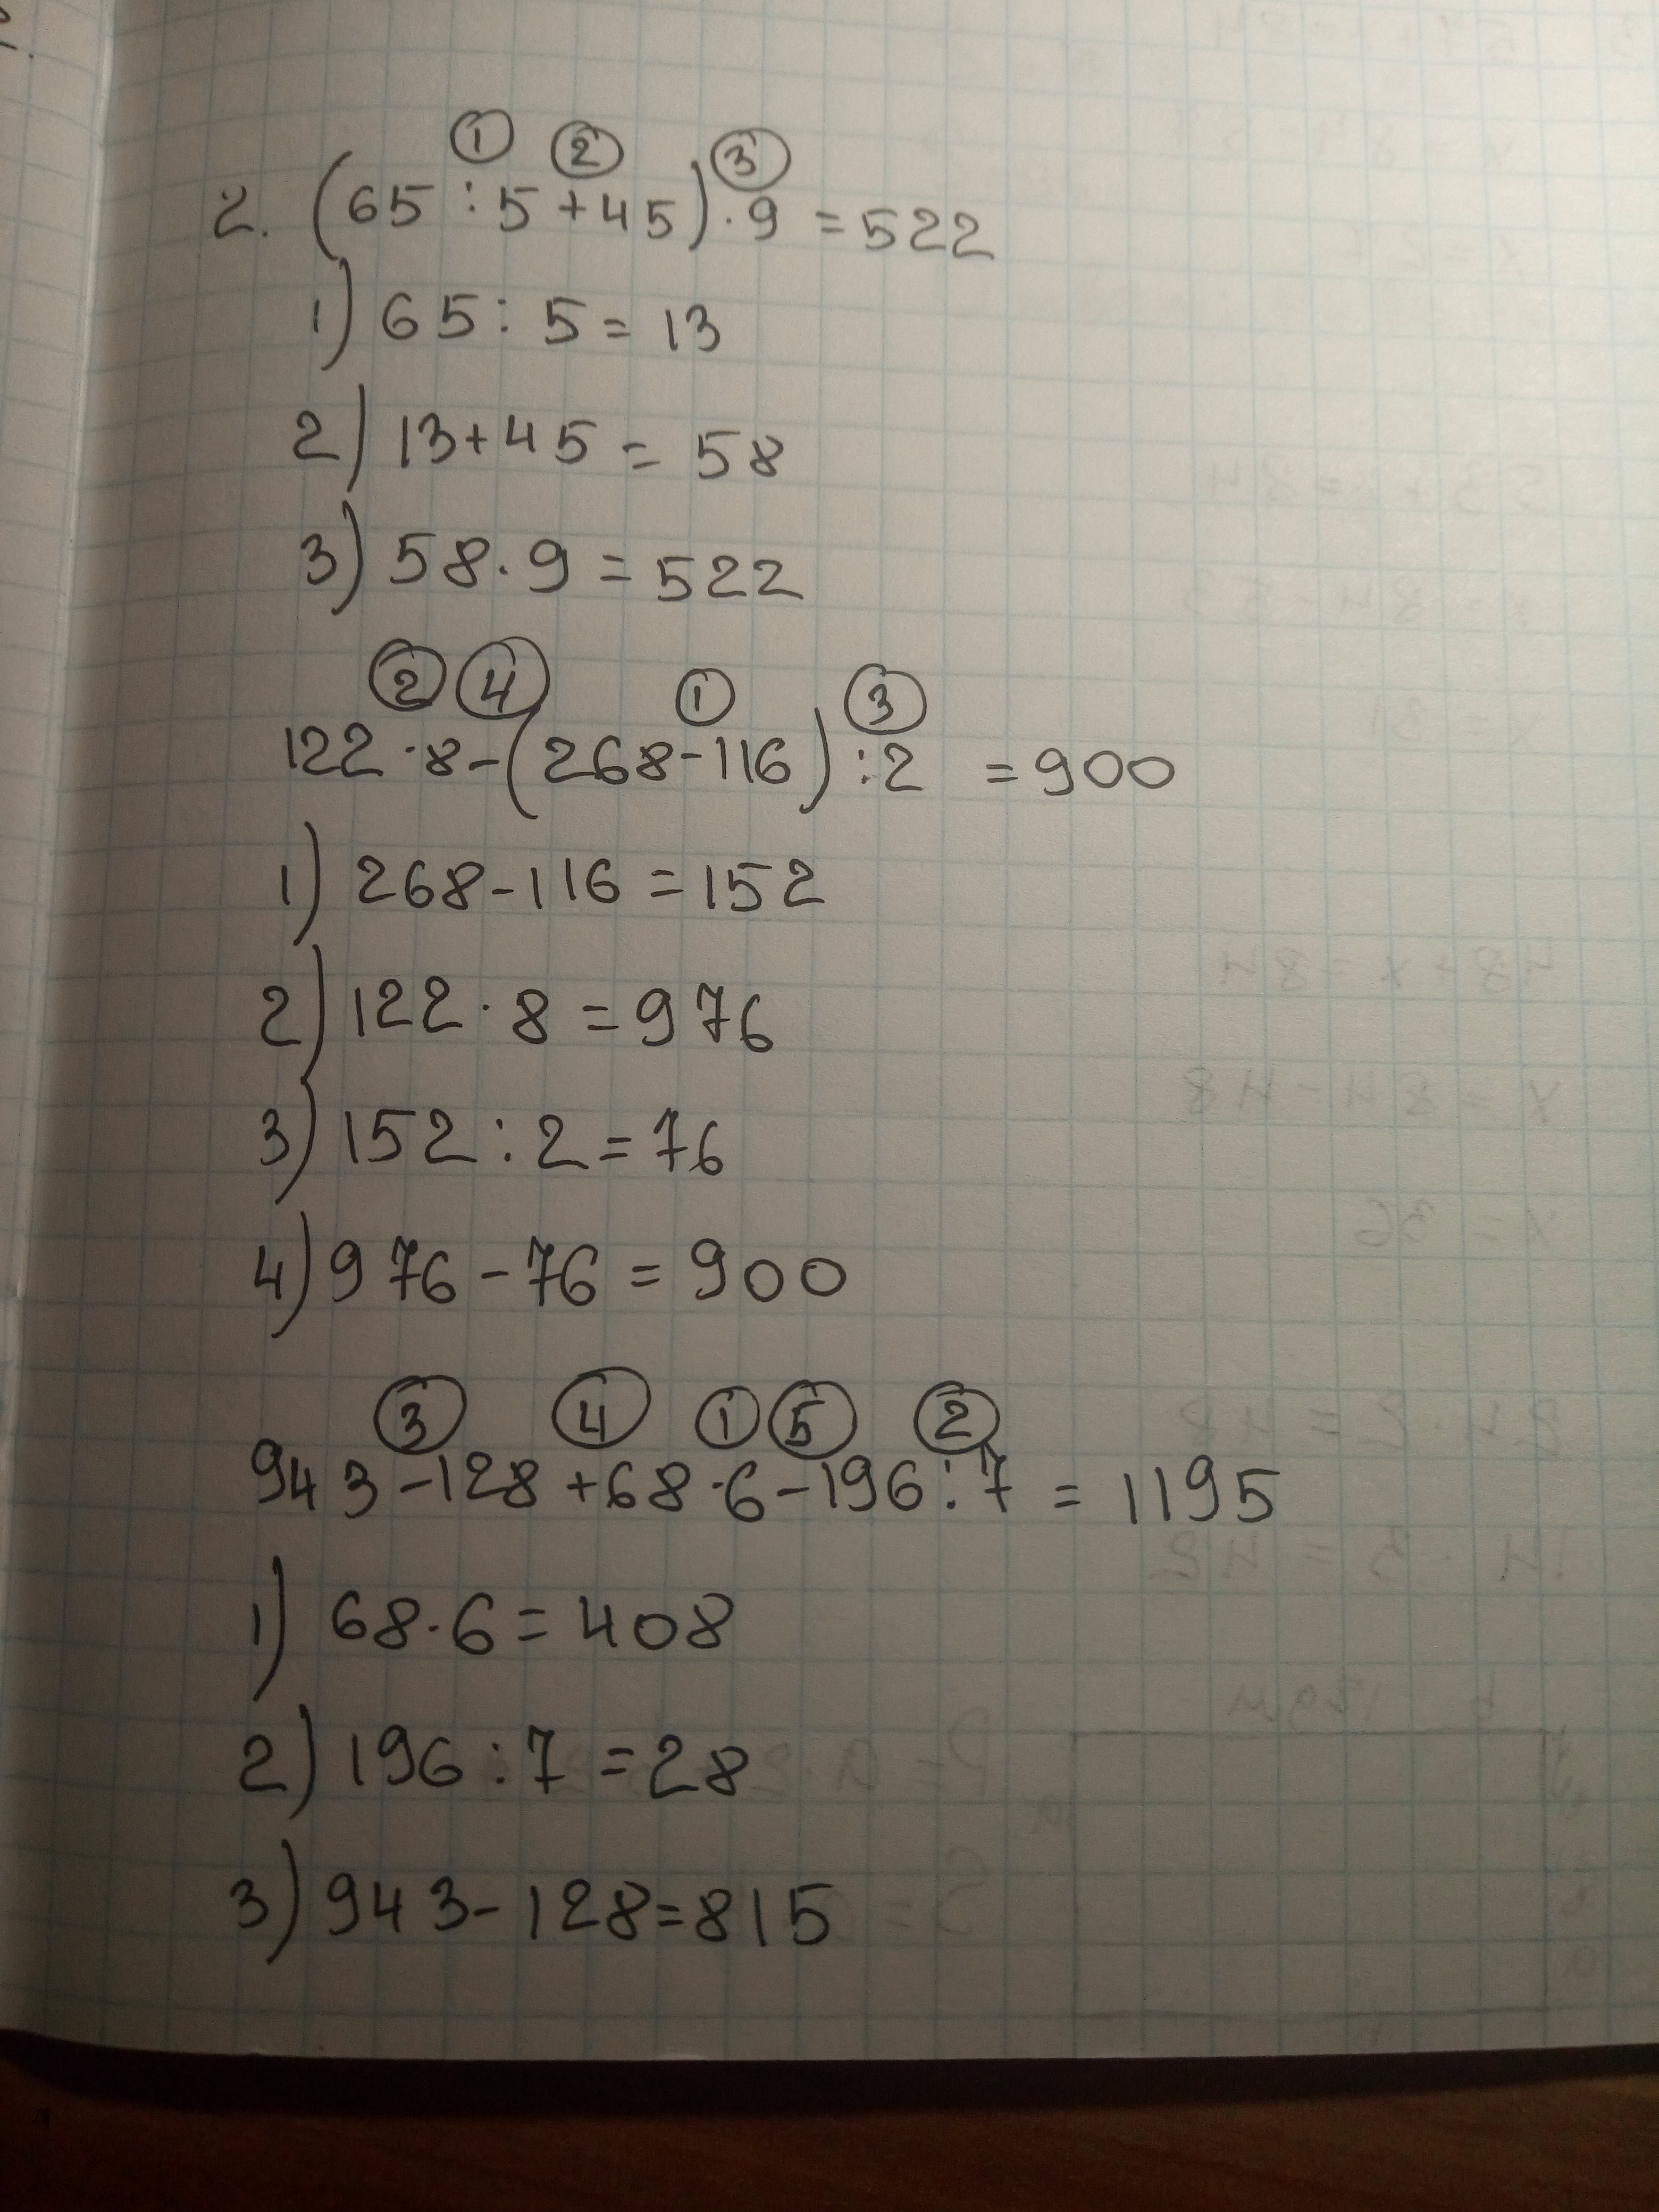 ① ② ③
2. (65 : 5 + 45) · 9 = 522
1) 65 : 5 = 13
2) 13 + 45 = 58
3) 58 · 9 = 522
② ④ ① ③
122 · 8 - (268 - 116) : 2 = 900
1) 268 - 116 = 152
2) 122 · 8 = 976
3) 152 : 2 = 76
4) 976 - 76 = 900
③ ④ ① ⑤ ②
943 - 128 + 68 · 6 - 196 : 7 = 1195
1) 68 · 6 = 408
2) 196 : 7 = 28
3) 943 - 128 = 815